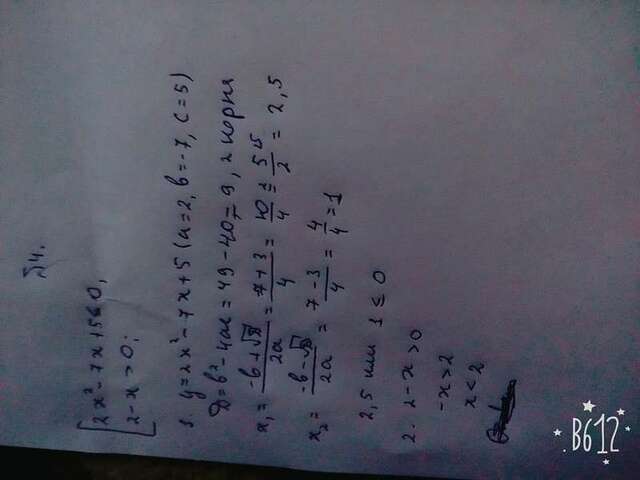 №4.
[2x²-7x+5≤0,
[2-x>0;
1. y=2x²-7x+5 (a=2, b=-7, c=5)
D=b²-4ac=49-40=9, 2 корня
x₁= (-b+√D)/2a = (7+3)/4 = 10/4 = 5/2 = 2,5
x₂= (-b-√D)/2a = (7-3)/4 = 4/4 =1
2,5 или 1 ≤ 0
2. 2-x>0
-x>2
x<2
B612